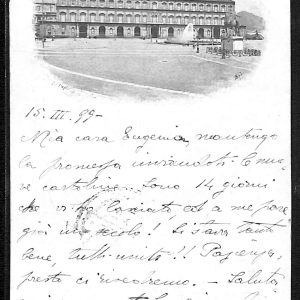 15. III. 99-
Mia cara Eugenia, mantengo
la promessa inviandoti le nuo
ve cartoline. Sono 14 giorni
che vi ho lasciato, ed a me pare
già un secolo! Si stava tanto
bene, tutti uniti!! Pazienza,
presto ci rivedremo. - Saluta